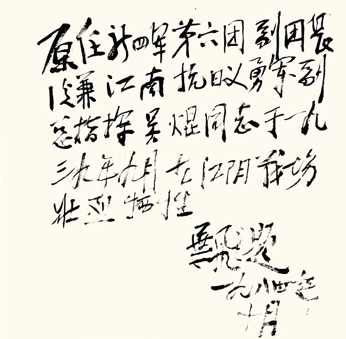 原任新四军第六团副团长
後兼江南抗日义勇军副
总指挥吴焜同志于一九
三九年九月在江阴战场
壮烈牺牲
葉飞题
一九八四年
十月